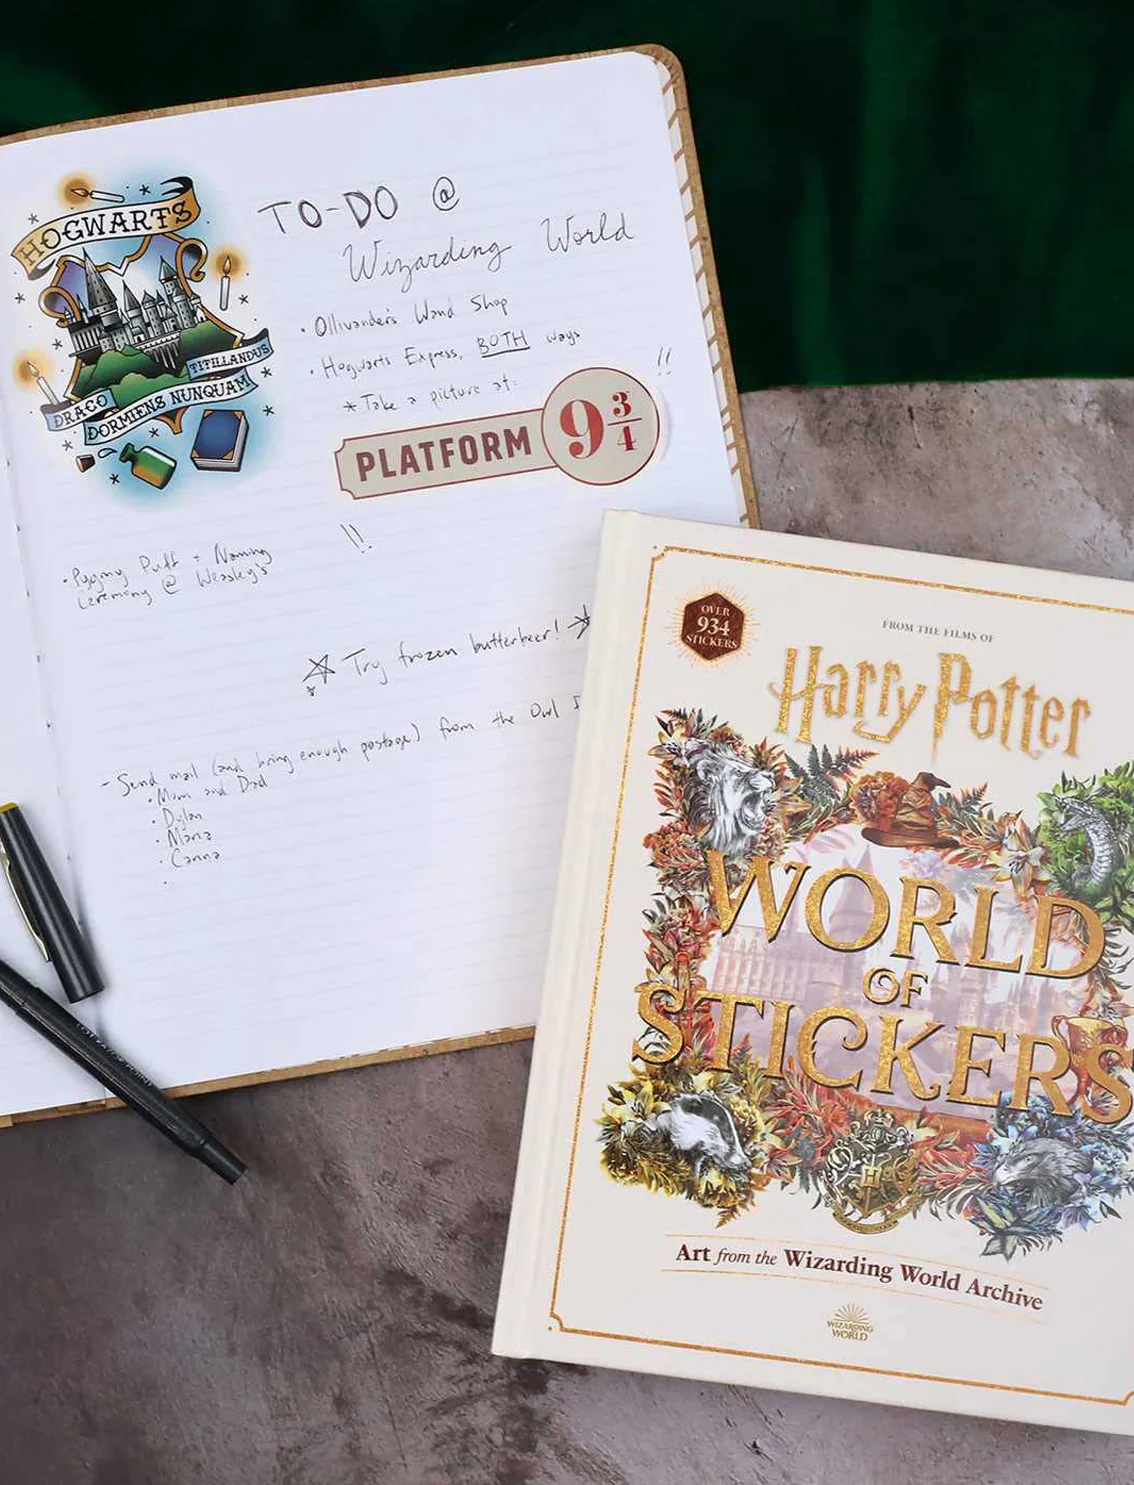 HOGWARTS
DRACO
DORMIENS NUNQUAM
TITILLANDUS
TO-DO @
Wizarding World
• Ollivander's Wand Shop
• Hogwarts Express, BOTH ways
* Take a picture at:
!!
PLATFORM 9 3/4
!!
• Pygmy Puff + Naming
Ceremony @ Weasley's
Try frozen butterbeer!
- Send mail (and bring enough postage) from the Owl
• Mom and Dad
• Dylan
• Maria
•
OVER
934
STICKERS
FROM THE FILMS OF
Harry Potter
WORLD
OF
STICKERS
H
Art from the Wizarding World Archive
WIZARDING
WORLD